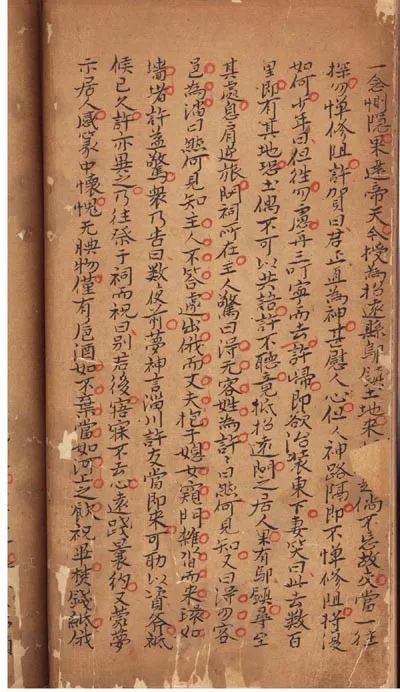 一念惻隱果達帝天今授為招遠縣鄔鎮土地來倘不忘故交當一往
探勿憚修阻許賀曰君正直為神甚慰人心但人神路隔即不憚修阻將復
如何少年曰但往勿慮再三叮寧而去許歸即欲治裝東下妻笑曰此去數百
里即有其地恐土偶不可以共語許不聽竟抵招遠問之居人果有鄔鎮尋至
其處息肩逆旅問祠所在主人驚曰得无客姓為許々曰然何見知又曰得勿客
邑為淄曰然何見知主人不答遽出俄而丈夫抱子媳女窺門雜沓而來環如
墻堵許益驚衆乃告曰數夜前夢神言淄川許友當即來可助以資斧祗
候已久許亦異之乃往祭于祠而祝曰別君後寤寐不去心遠踐曩約又蒙夢
示居人感篆中懷愧无腆物僅有卮酒如不棄當如河上之飲祝畢焚錢紙俄